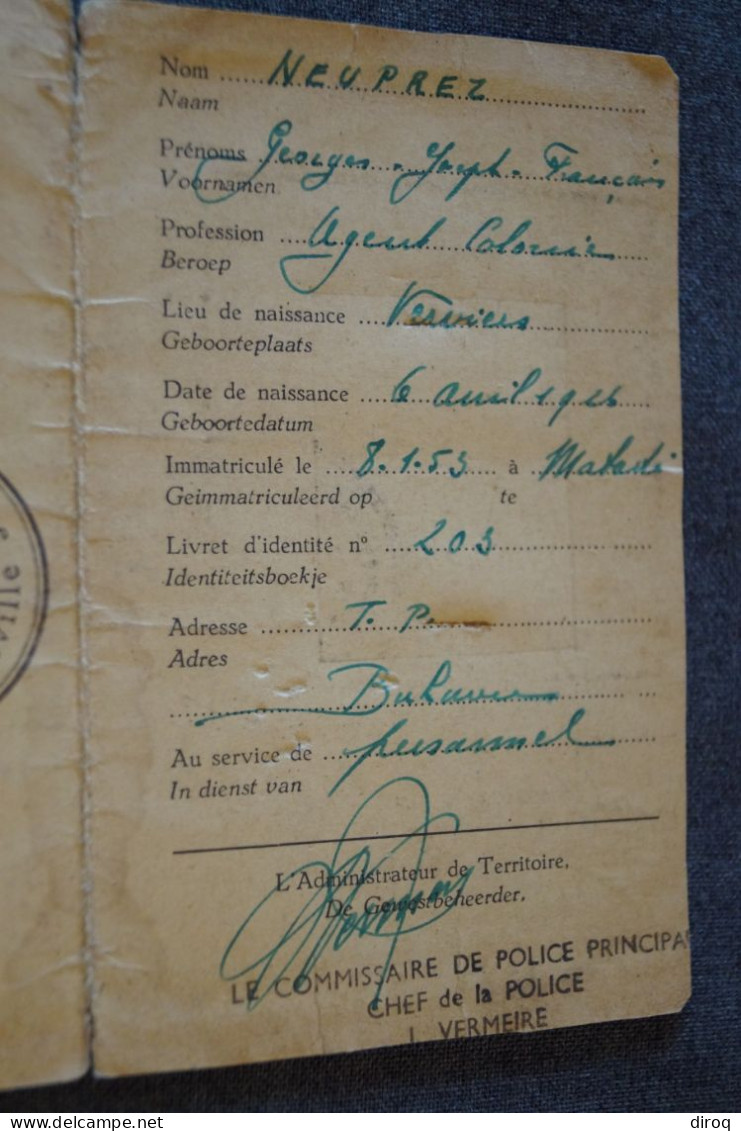 Nom NEUPREZ
Naam
Prénoms Georges - Joseph - François
Voornamen
Profession Agent Colonie
Beroep
Lieu de naissance Verviers
Geboorteplaats
Date de naissance 6 avril 1926
Geboortedatum
Immatriculé le 8.1.53 à Matadi
Geïmmatriculeerd op te
Livret d'identité n° 203
Identiteitsboekje
Adresse T. P.
Adres
Bukavu
Au service de personnel
In dienst van
L'Administrateur de Territoire,
De Gewestbeheerder,
LE COMMISSAIRE DE POLICE PRINCIPA
CHEF de la POLICE
VERMEIRE
ville
delcampe.net
diroq